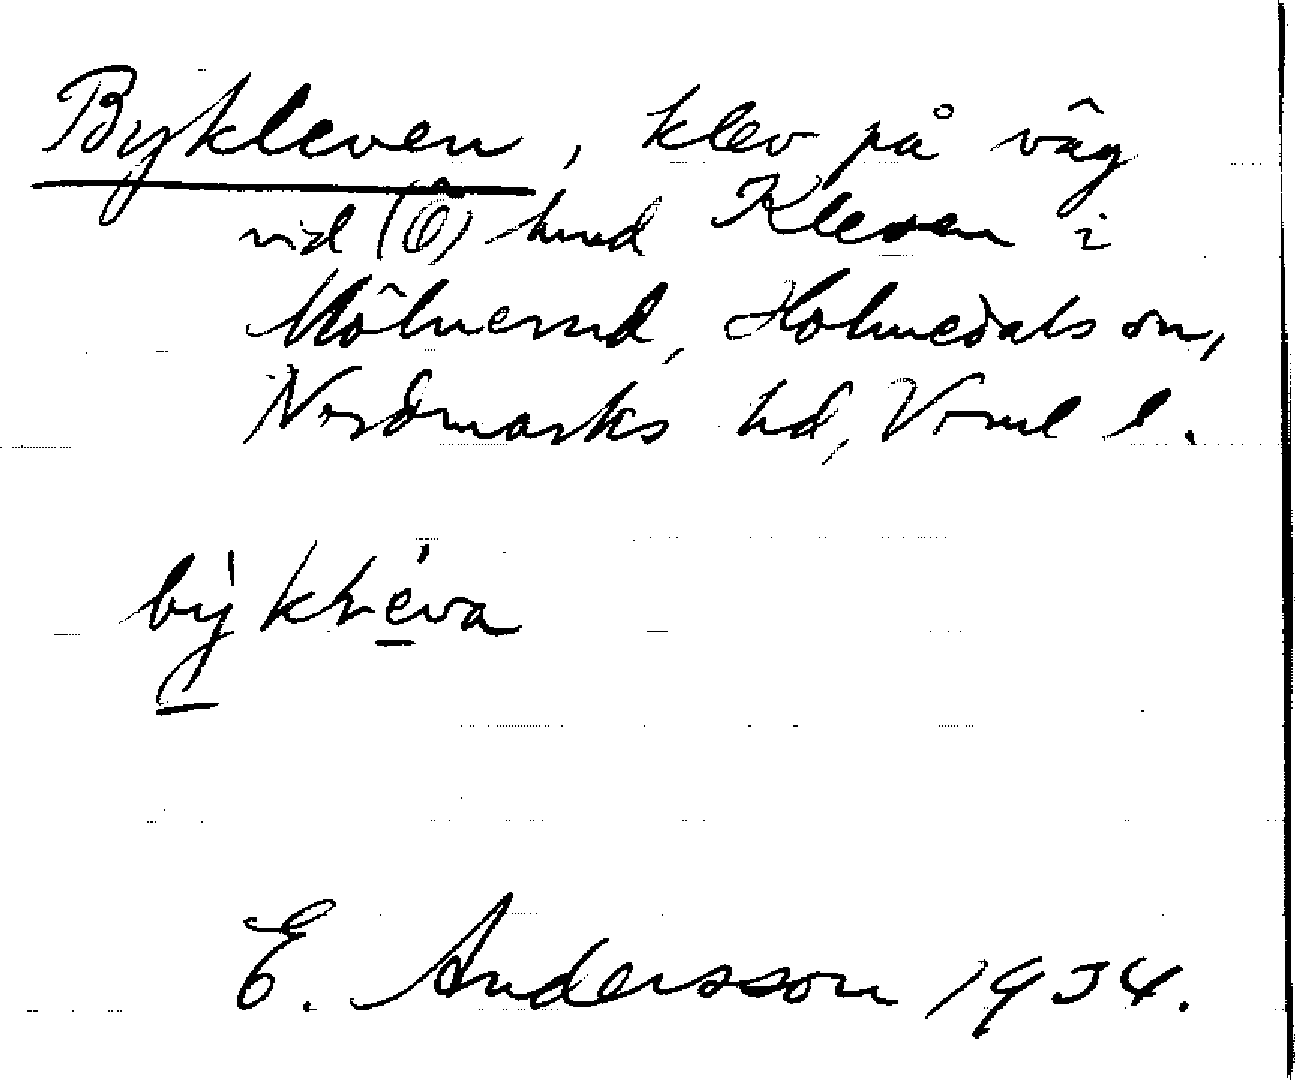 Bykleven, klev på väg
vid (Ö) hmd Kleven i
Mölnerud, Holmedals sn,
Nordmarks hd, Vrml l.
bỳkḷéva
E. Andersson 1934.